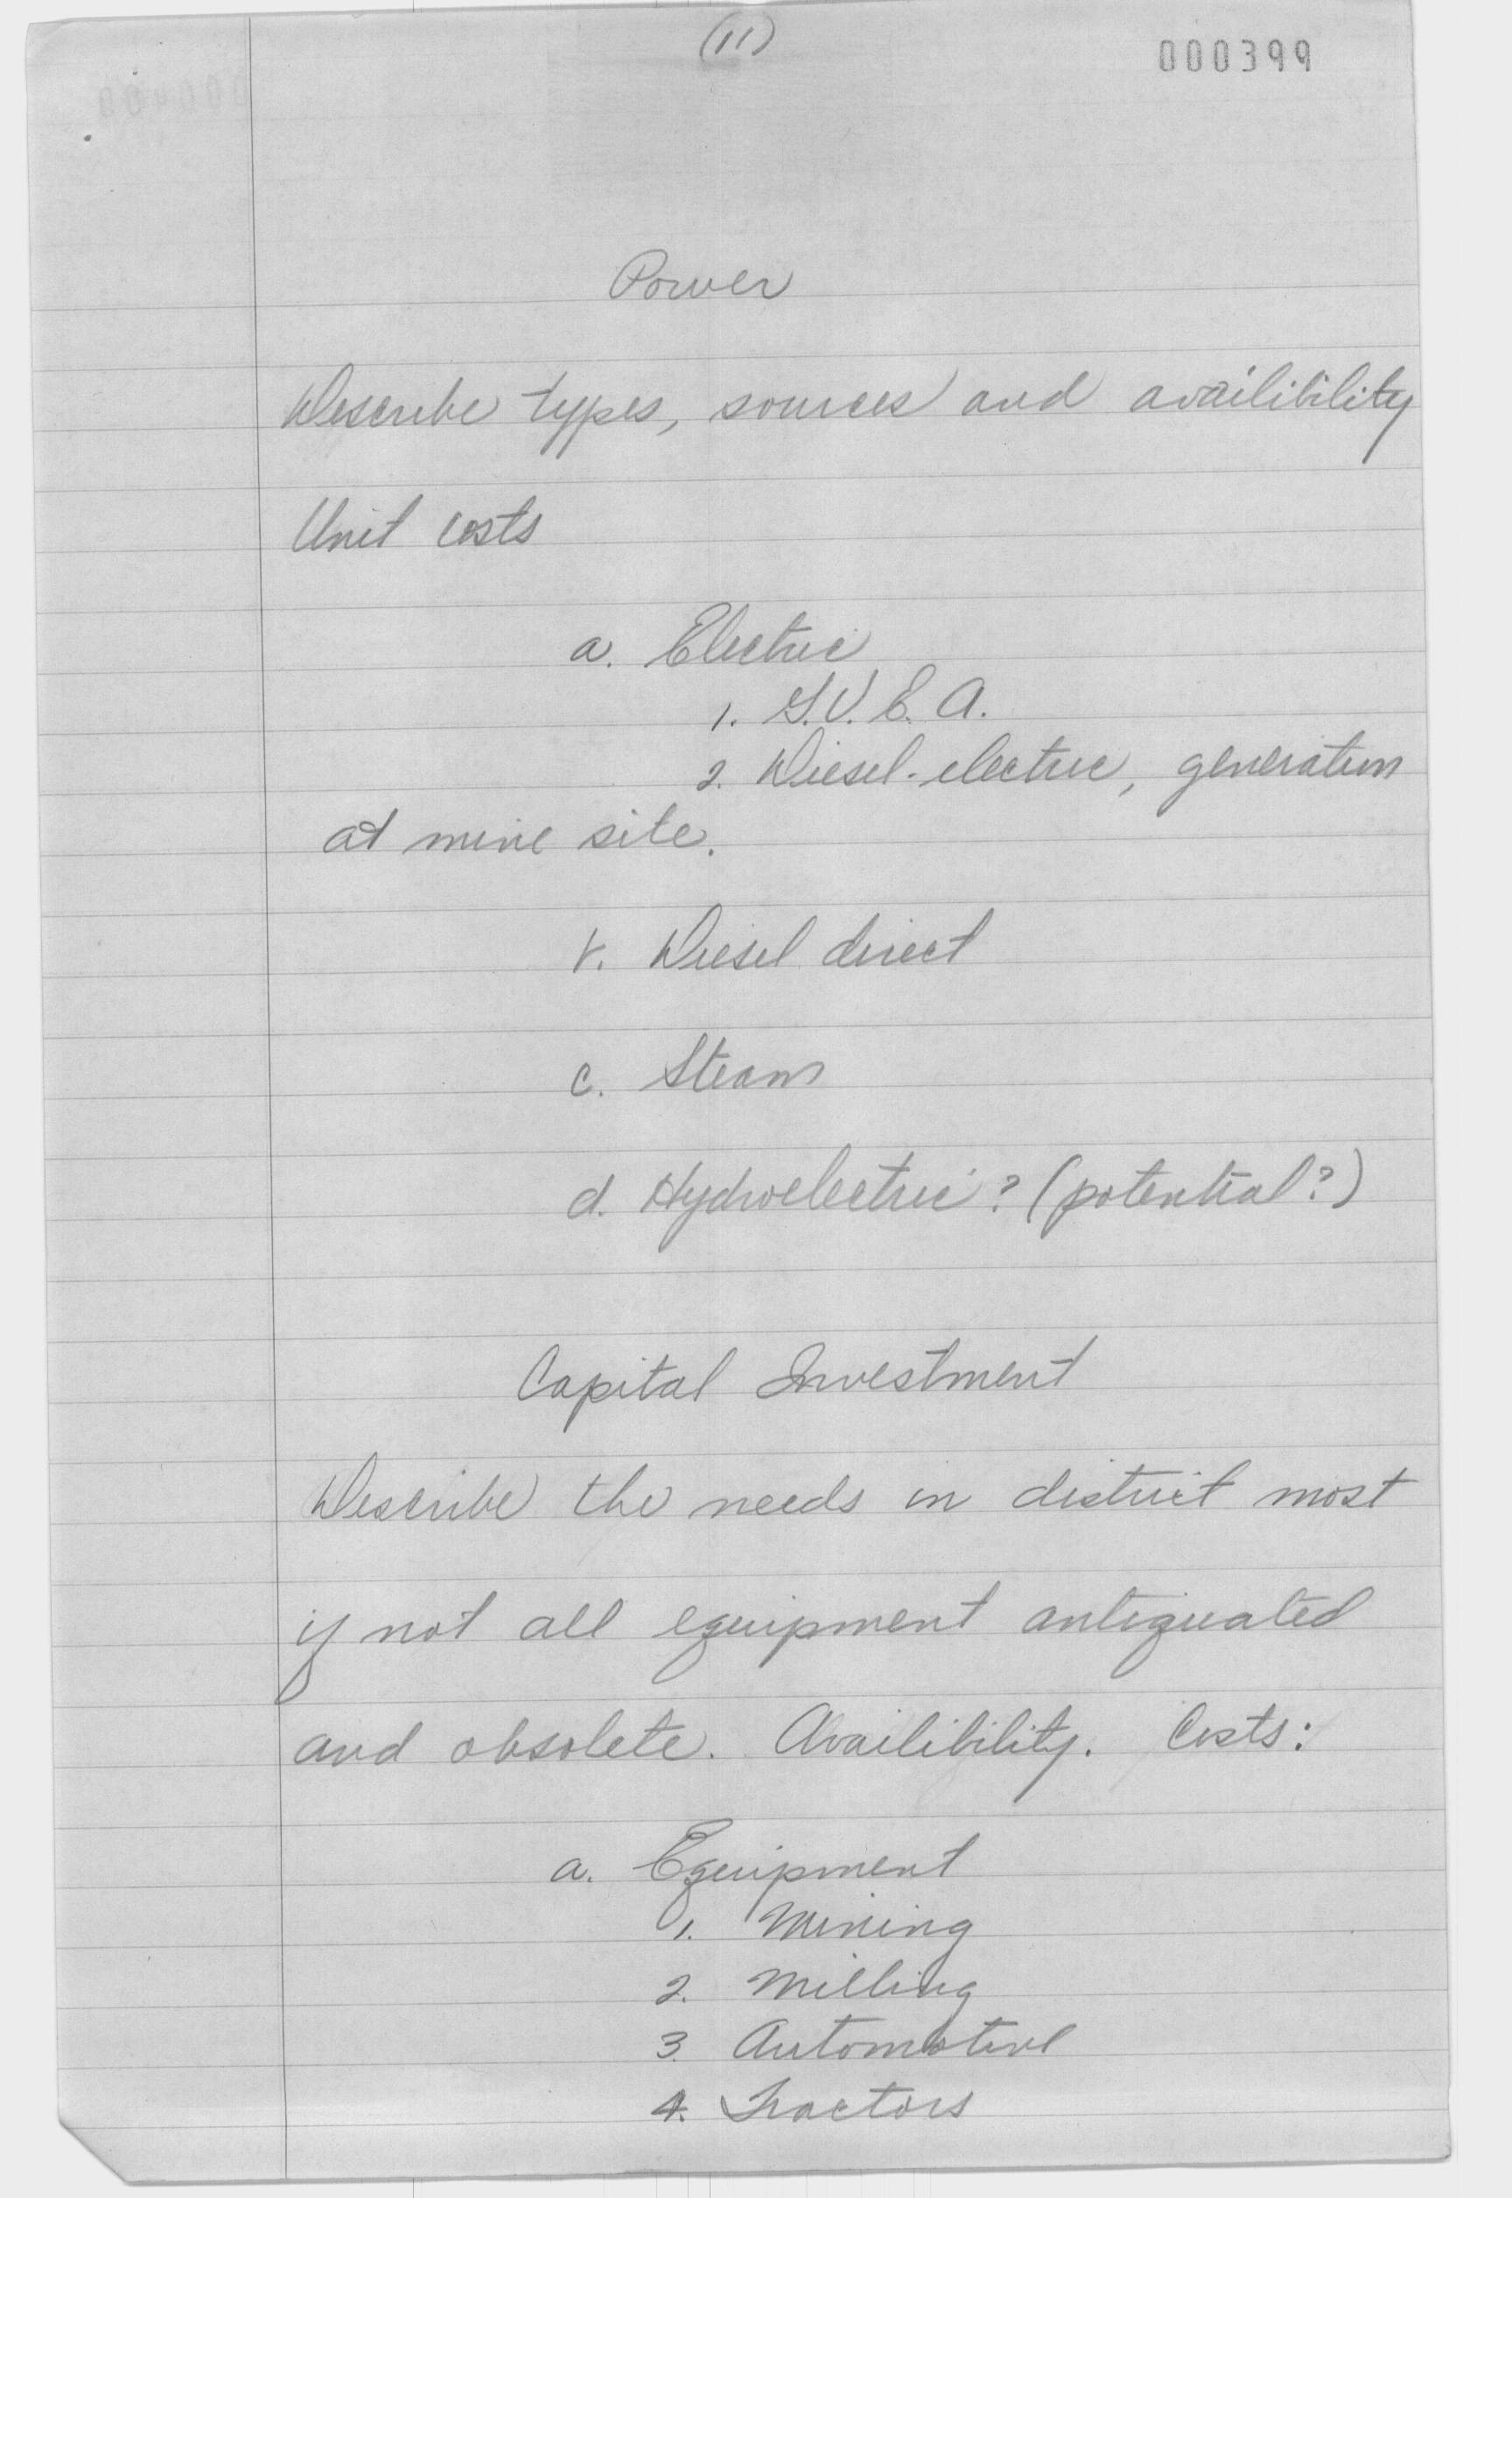 (11)
000399
Power
Describe types, sources and availibility
Unit costs
a. Electric
1. G.V.E.A.
2. Diesel-electric, generation
at mine site.
b. Diesel direct
c. Steam
d. Hydroelectric? (potential?)
Capital Investment
Describe the needs in district most
if not all equipment antiquated
and obsolete. Availibility. Costs:
a. Equipment
1. Mining
2. Milling
3. Automotive
4. Tractors